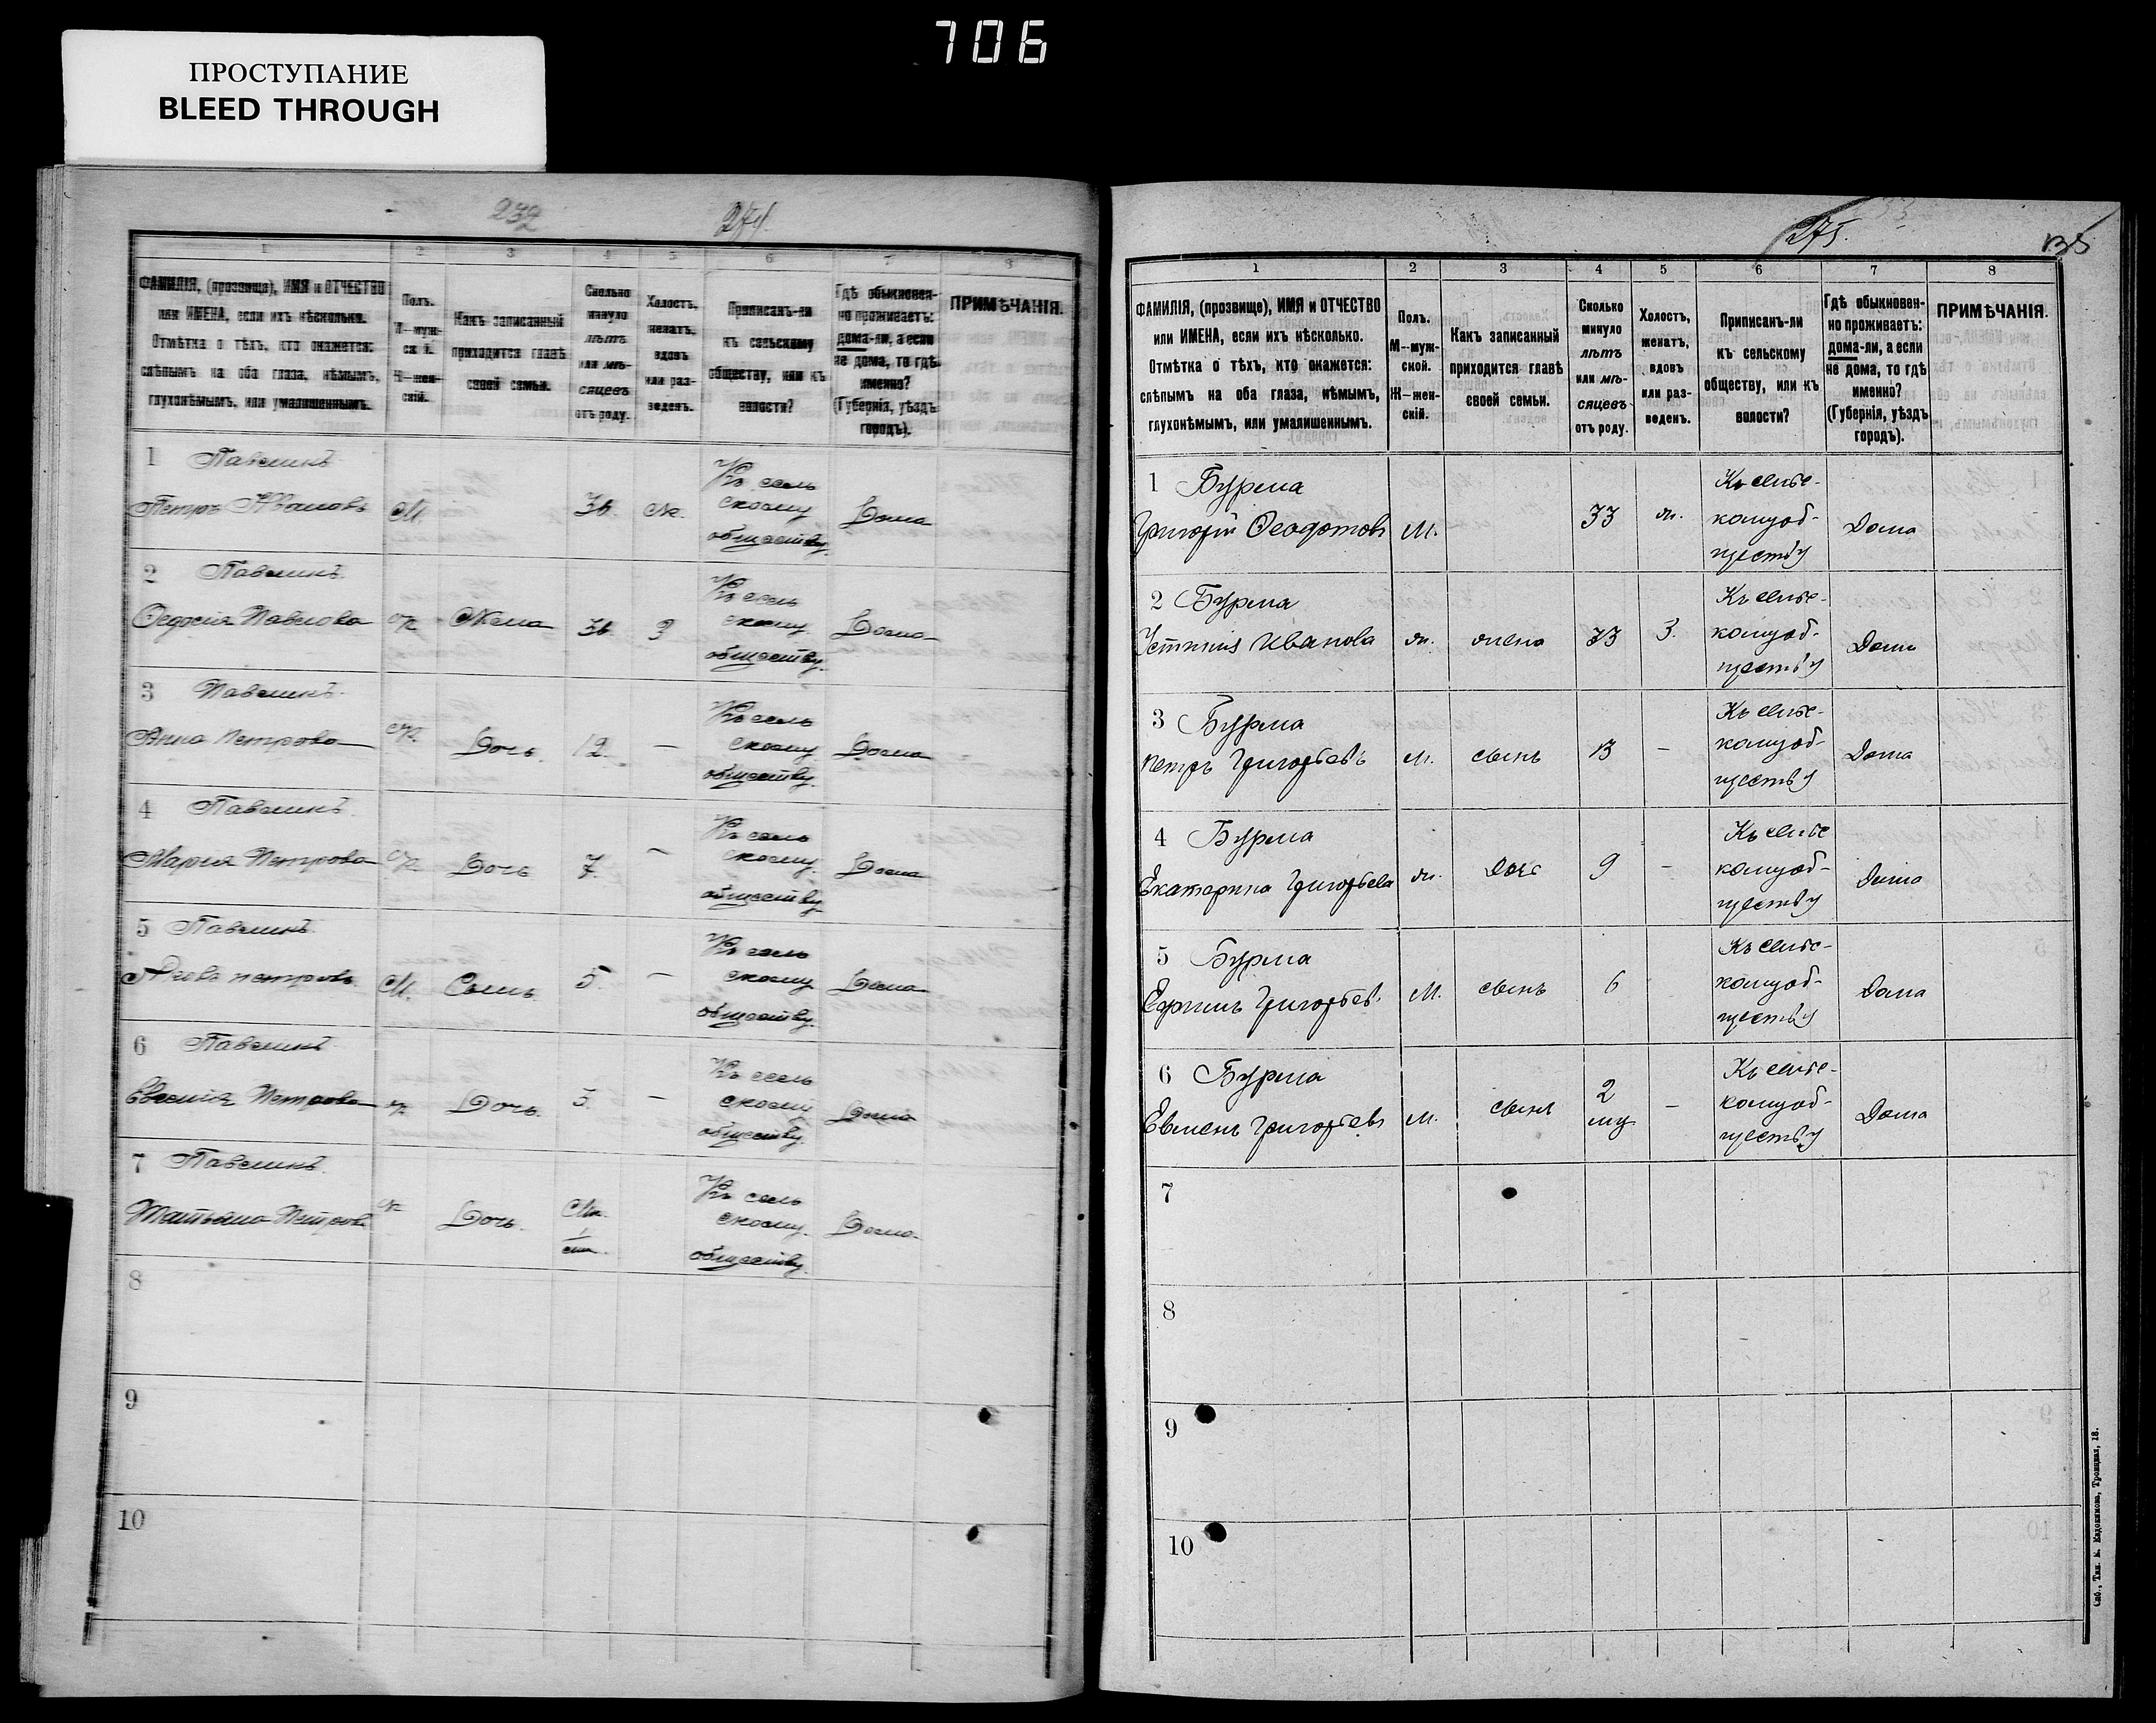 706
ПРОСТУПАНИЕ
BLEED THROUGH
232
274.
1 2 3 4 5 6 7 8
ФАМИЛІЯ, (прозвище), ИМЯ и ОТЧЕСТВО
или ИМЕНА, если ихъ нѣсколько.
Отмѣтка о тѣхъ, кто окажется:
слѣпымъ на оба глаза, нѣмымъ,
глухонѣмымъ, или умалишеннымъ.
Полъ.
М—муж-
ской.
Ж—жен-
скій.
Какъ записанный
приходится главѣ
своей семьи.
Сколько
минуло
лѣтъ
или мѣ-
сяцевъ
отъ роду.
Холостъ,
женатъ,
вдовъ
или раз-
веденъ.
Приписанъ-ли
къ сельскому
обществу, или къ
волости?
Гдѣ обыкновен-
но проживаетъ:
дома-ли, а если
не дома, то гдѣ
именно?
(Губернія, уѣздъ
городъ).
ПРИМѢЧАНІЯ.
1 Павлинъ
Петръ Ивановъ М. Ж. Къ сель
скому
обществу. Дома
2 Павлинъ
Ѳедосія Павлова Ж Жена З Къ сель
скому
обществу. Дома
3 Павлинъ
Анна Петрова Ж. Дочь 12. — Къ сель
скому
обществу. Дома
4 Павлинъ
Марія Петрова Ж. Дочь 7. — Къ сель
скому
обществу Дома
5 Павлинъ
петровъ М. Сынъ 5. — Къ сель
скому
обществу. Дома
6 Павлинъ
Петрова Ж Дочь. 5. — Къ сель
скому
обществу. Дома
7 Павлинъ.
Татьяна Петрова Ж Дочь. Къ сель
скому.
обществу. Дома
8
9
10
275.
135
1 2 3 4 5 6 7 8
ФАМИЛІЯ, (прозвище), ИМЯ и ОТЧЕСТВО
или ИМЕНА, если ихъ нѣсколько.
Отмѣтка о тѣхъ, кто окажется:
слѣпымъ на оба глаза, нѣмымъ,
глухонѣмымъ, или умалишеннымъ.
Полъ.
М—муж-
ской.
Ж—жен-
скій.
Какъ записанный
приходится главѣ
своей семьи.
Сколько
минуло
лѣтъ
или мѣ-
сяцевъ
отъ роду.
Холостъ,
женатъ,
вдовъ
или раз-
веденъ.
Приписанъ-ли
къ сельскому
обществу, или къ
волости?
Гдѣ обыкновен-
но проживаетъ:
дома-ли, а если
не дома, то гдѣ
именно?
(Губернія, уѣздъ
городъ).
ПРИМѢЧАНІЯ.
1 Бурма
Григорій Ѳеодотовъ М. 33 ж. Къ сельс-
комуоб-
ществу Дома
2 Бурма
Иванова ж. жена 33 З. Къ сельс-
комуоб-
ществу Дома
3 Бурма
Петръ Григорьевъ М. сынъ 13 — Къ сельс-
комуоб-
ществу Дома
4 Бурма
Екатерина Григорьева ж. дочь 9 — Къ сельс
комуоб-
ществу Дома
5 Бурма
Ефимъ Григорьевъ М. сынъ 6 - Къ сельс-
комуоб-
ществу Дома
6 Бурма
Евменъ Григорьевъ М. сынъ 2
мц — Къ сельс-
комуоб-
ществу Дома
7
8
9
10